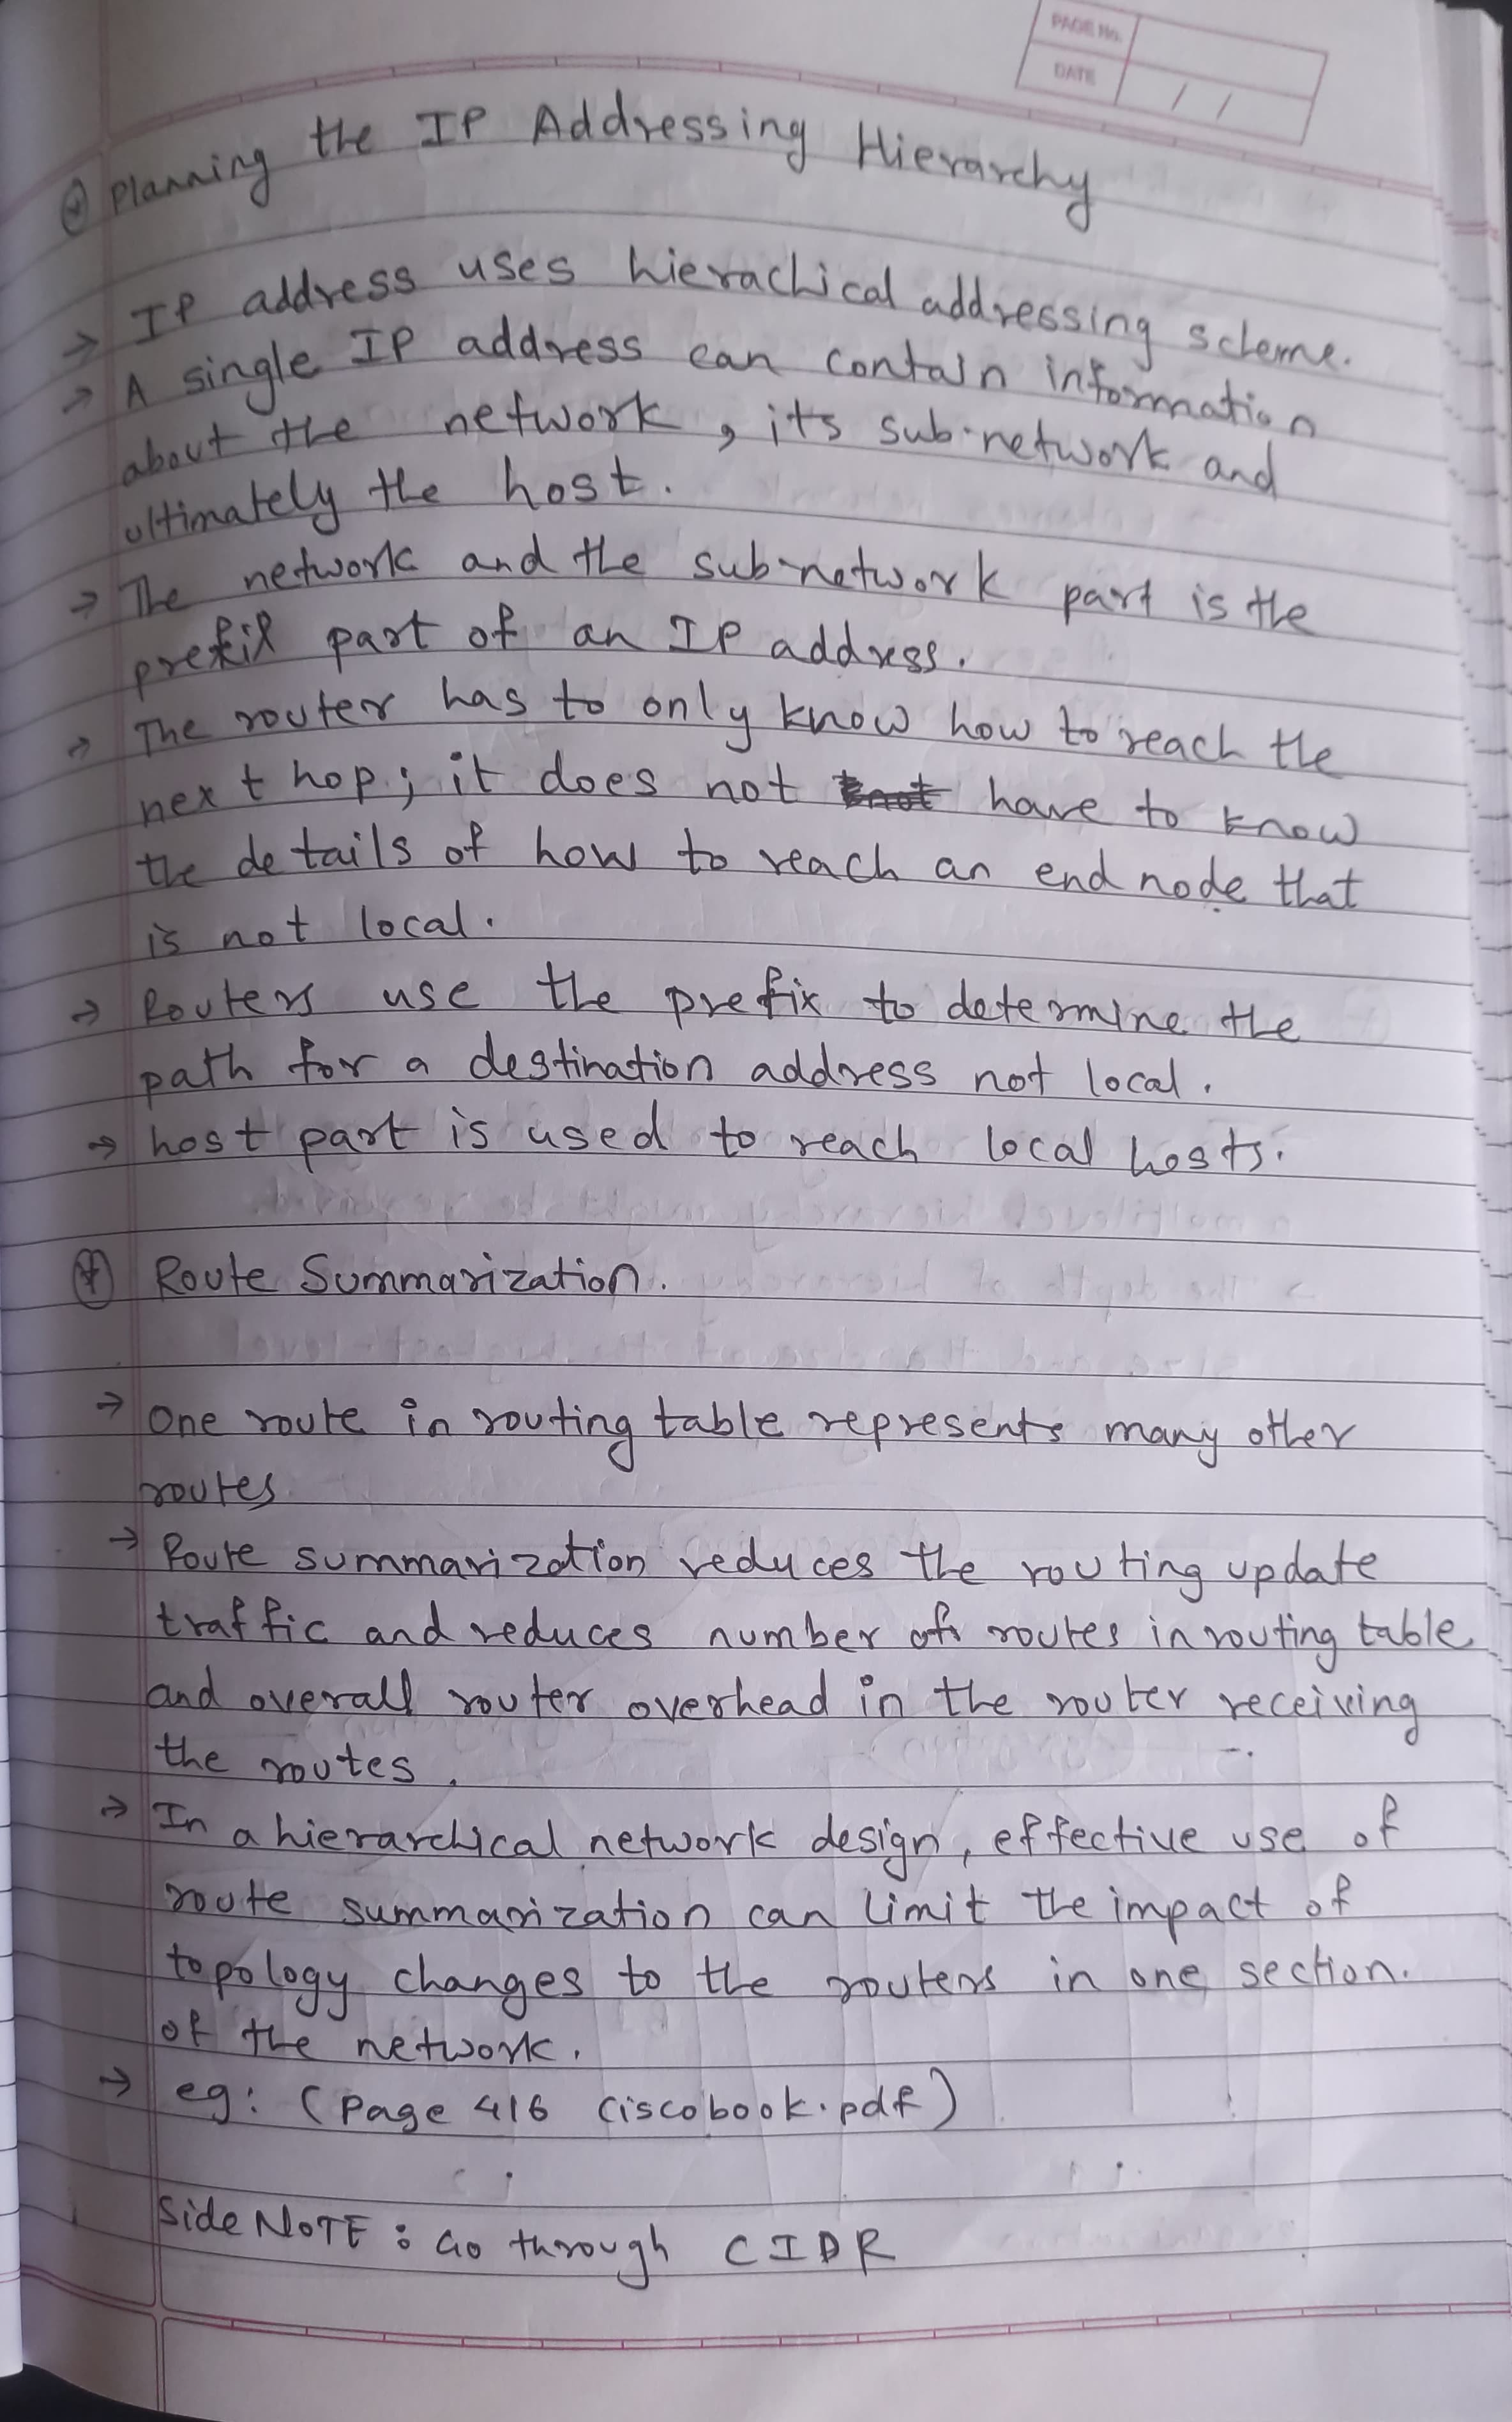 PAGE No.
DATE / /
⊛ Planning the IP Addressing Hierarchy
→ IP address uses hierachical addressing scheme.
→ A single IP address can contain information
about the network, its sub-network and
ultimately the host.
→ The network and the sub-network part is the
prefix part of an IP address.
→ The router has to only know how to reach the
next hop; it does not have to know
the details of how to reach an end node that
is not local.
→ Routers use the prefix to determine the
path for a destination address not local.
→ host part is used to reach local hosts.
⊛ Route Summarization.
→ One route in routing table represents many other
routes
→ Route summarization reduces the routing update
traffic and reduces number of routes in routing table
and overall router overhead in the router receiving
the routes.
→ In a hierarchical network design, effective use of
route summarization can limit the impact of
topology changes to the routers in one section.
of the network.
→ eg: (Page 416 ciscobook.pdf)
Side NOTE: Go through CIDR